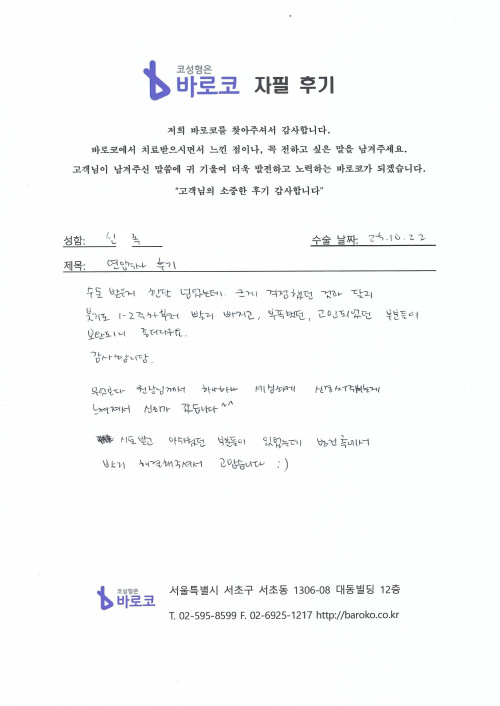 코성형은
바로코 자필 후기
저희 바로코를 찾아주셔서 감사합니다.
바로코에서 치료받으시면서 느낀 점이나, 꼭 전하고 싶은 말을 남겨주세요.
고객님이 남겨주신 말씀에 귀 기울여 더욱 발전하고 노력하는 바로코가 되겠습니다.
"고객님의 소중한 후기 감사합니다"
성함: 신 수술 날짜: 25.10.22
제목: 후기
수술 받은지 한달 넘었는데 크게 걱정했던 것과 달리
붓기도 1-2주차부터 빨리 빠지고, 부족했던, 고민되었던 부분들이
보완되니 좋더라구요.
감사합니다.
무엇보다 원장님께서 하나하나 세심하게 신경써주셨는데
느껴져서 신뢰가 갔습니다^^
시술받고 아쉬웠던 부분들이 있었는데 병원측에서
빨리 해결해주셔서 고맙습니다 :)
코성형은
바로코
서울특별시 서초구 서초동 1306-08 대동빌딩 12층
T. 02-595-8599 F. 02-6925-1217 http://baroko.co.kr